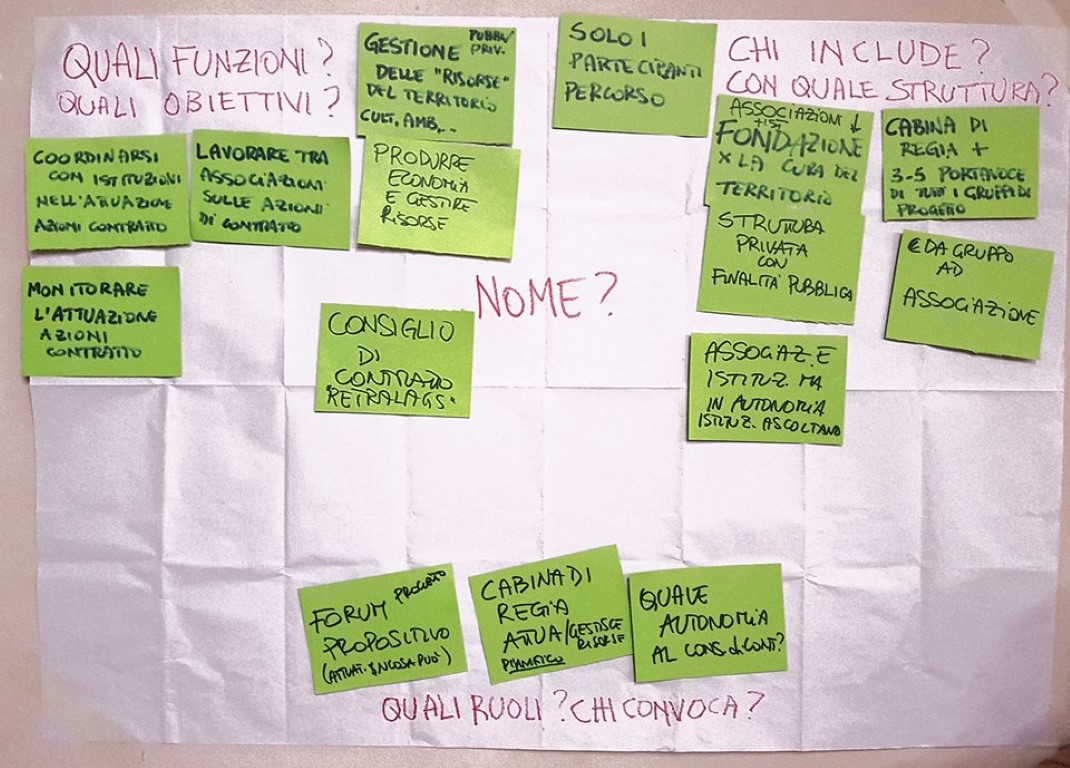 QUALI FUNZIONI?
QUALI OBIETTIVI?
GESTIONE PUBB/
PRIV.
DELLE "RISORSE"
DEL TERRITORIO
CULT, AMB,...
SOLO I
PARTECIPANTI
PERCORSO
CHI INCLUDE?
CON QUALE STRUTTURA?
COORDINARSI
CON ISTITUZIONI
NELL'ATTUAZIONE
AZIONI CONTRATTO
LAVORARE TRA
ASSOCIAZIONI
SULLE AZIONI
DI CONTRATTO
PRODURRE
ECONOMIA
E GESTIRE
RISORSE
ASSOCIAZIONI ↓
+IST
FONDAZIONE
X LA CURA DEL
TERRITORIO
CABINA DI
REGIA +
3-5 PORTAVOCE
DI TUTTI I GRUPPI DI
PROGETTO
STRUTTURA
PRIVATA
CON
FINALITÀ PUBBLICA
DA GRUPPO
AD
ASSOCIAZIONE
MONITORARE
L'ATTUAZIONE
AZIONI
CONTRATTO
NOME?
CONSIGLIO
DI
CONTRATTO
"RETRALAGS"
ASSOCIAZ. E
ISTITUZ. MA
IN AUTONOMIA
ISTITUZ. ASCOLTANO
FORUM PROGETTO
PROPOSITIVO
CABINA DI
REGIA
ATTUA/GESTISCE
RISORSE
QUALE
AUTONOMIA
AL CONS. di CONT?
QUALI RUOLI? CHI CONVOCA?